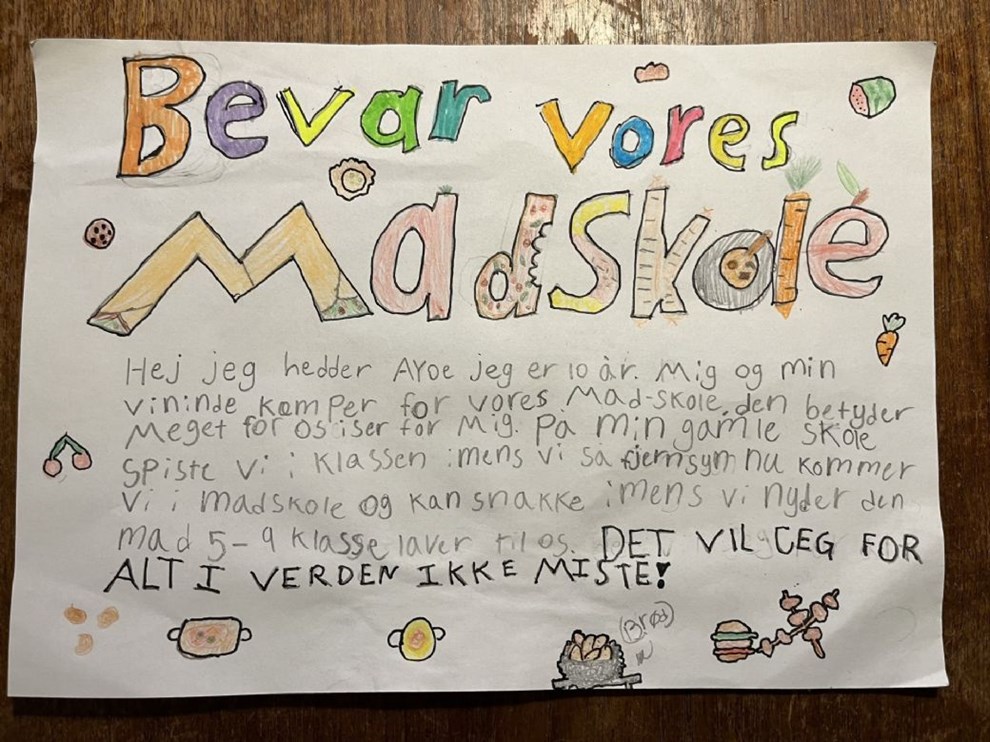 Bevar vores
Madskole
Hej jeg hedder AYOE jeg er 10 år. Mig og min
vininde kæmper for vores Mad-skole, den betyder
Meget for os iser for Mig. På min gamle skole
spiste vi i klassen imens vi så fjernsym nu kommer
vi i madskole og kan snakke imens vi nyder den
mad 5-9 klasse laver til os. DET VIL JEG FOR
ALT I VERDEN IKKE MISTE!
Brød